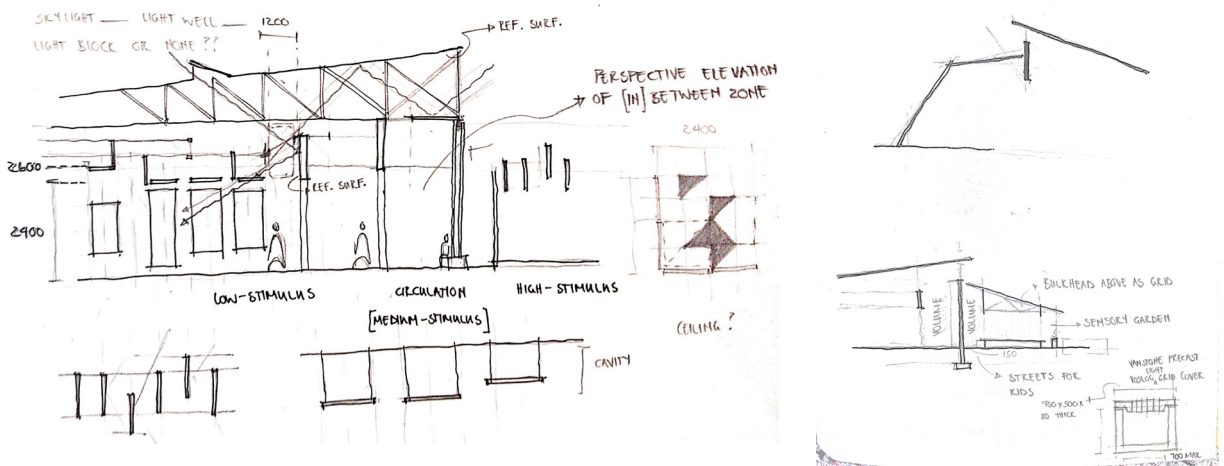 SKYLIGHT — LIGHT WELL — 1200
LIGHT BLOCK OR NONE??
REF. SURF.
PERSPECTIVE ELEVATION
OF [IN] BETWEEN ZONE
2400
2600
REF. SURF.
2400
LOW-STIMULUS
CIRCULATION
HIGH-STIMULUS
[MEDIUM-STIMULUS]
CEILING?
CAVITY
BULKHEAD ABOVE AS GRID
VOLUME
VOLUME
SENSORY GARDEN
150
STREETS FOR
KIDS
PRECAST
LIGHT
GRID COVER
700 x 500 x
80 THICK
700